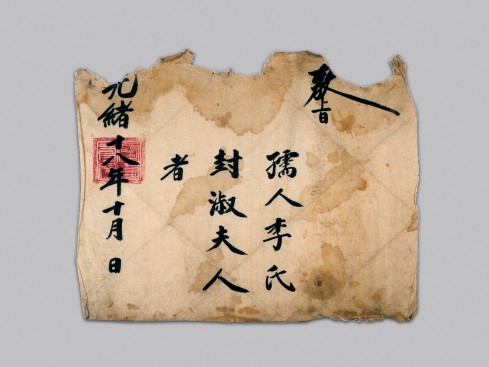 奉旨
孺人李氏
封淑夫人
者
光緒十八年十月 日